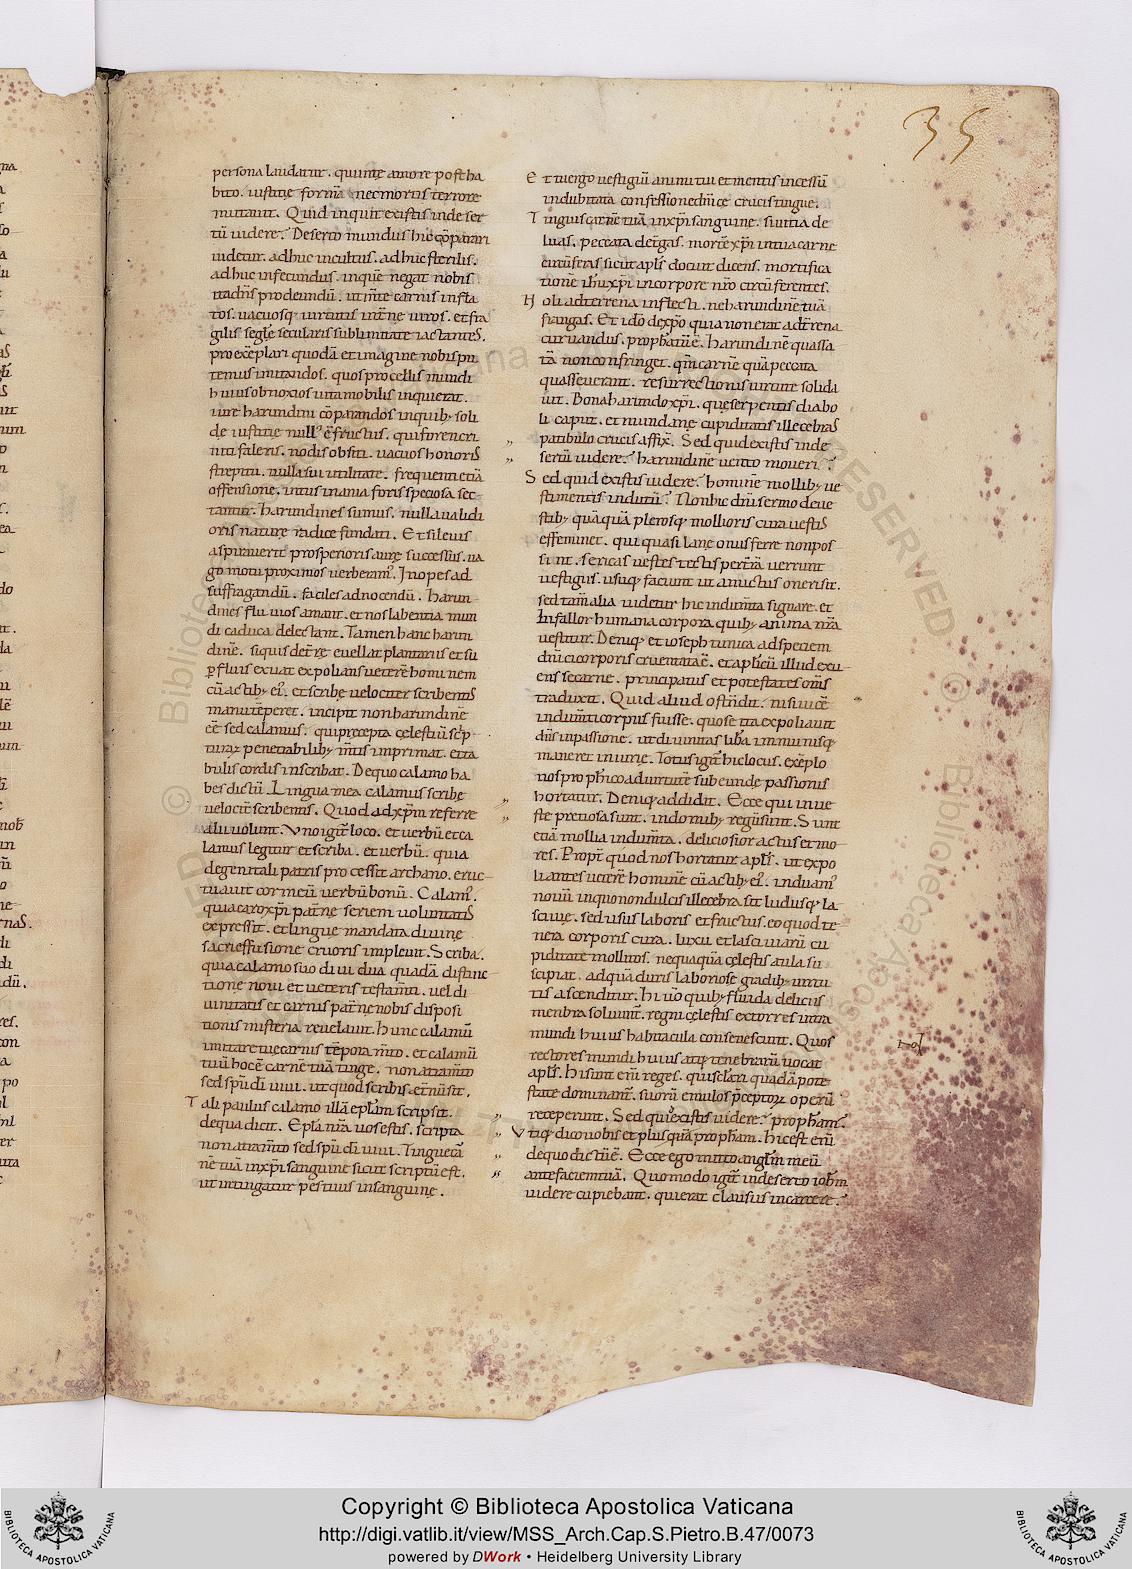 35
persona laudatur. qui nec̄ amore postha
bito. iustitię formā nec mortis terrore
mutauit. Quid inquit existis inde ser
tū uidere? Deserto mundus hic cōparari
uidetur. adhuc incultus. adhuc sterilis.
adhuc infecundus. inquē negat nobis
tradn̄s prodeundū. ut mt̄e carnis infla
tos. uacuosq; uirtutis intn̄ę uiros. et fra
gilis segle secularis sublimitate iactantes.
pro exēplari quodā et imagine nobis pu
temus imitandos. quos procellis mundi
huius obnoxios uita mobilis inquietat.
iure harundini cōparandos inquib; soli
dę iustitię null᾽ ē fructus. qui forenci
nti faleris. nodis obsiti. uacuos honoris
strepitu. nulla sui utilitate. frequenti etiā
offensione. intus inania foris speciosa sec
tantur. harundines sumus. nulla ualidi
oris naturę radice fundati. Et si leuis
aspirauerit prosperioris aurę successus. ua
go motu proximos uerberam᾽. Inopes ad
suffragandū. faciles ad nocendū. harun
dines fluuios amant. et nos labentia mun
di caduca delectant. Tamen hanc harun
dinē. si quis det̄rę euellat plantariis et su
ꝑfluis exuat expolians ueterē hominem
cū actib; ei᾽. et scribę uelociter scribentis
manu tēperet. incipit non harundinē
eē sed calamus. qui precepta cęlestiū sc̄ꝑ
turaꝝ penetrabilib; m̄tis imprimat. et ta
bulis cordis inscribat. De quo calamo ha
bes dictū. Lingua mea calamus scribę
uelocit̄ scribentis. Quod ad xp̄m referre
alii uolunt. Vno igit̄ loco. et uerbū et ca
lamus legitur et scriba. et uerbū. quia
de genitali patris processit archano. eruc
tuauit cor meū uerbū bonū. Calam᾽.
quia caro xp̄i pat̄nę seriem uoluntatis
expressit. et linguę mandata diuinę
sacri effusione cruoris impleuit. Scriba.
quia calamo suo diuidua quadā distinc
tionę noui et ueteris testam̄ti. uel di
uinitatis et carnis pat̄nę nobis disposi
tionis misteria reuelauit. hunc calamū
imitare tuę carnis tēporam̄to. et calamū
tuū hoc ē carnē tuā tingę. non atram̄to
sed sp̄u dī uiui. ut quod scribis. et̄nū sit.
Tali paulus calamo illā epl̄am scripsit.
de qua dicit. Epl̄a nr̄a uos estis. scripta
non atram̄to sed sp̄u dī uiui. Tingue cā
nē tuā in xp̄i sanguine sicut scriptū est.
ut intingatur pes tuus in sanguinę.
Et tu ergo uestigiū animi tui et mentis incessū
indubitata confessione dn̄icę crucis tingue.
Tinguis carnē tuā in xp̄i sanguine. si uitia de
luas. peccata det̄gas. mortē xp̄i in tua carne
circūferas sicut apl̄s docuit dicens. mortifica
tionē ih̄u xp̄i in corpore nr̄o circūferentes.
Noli ad terrena inflecti. ne harundinē tuā
frangas. Et ido de xp̄o quia non erat ad t̄rena
curuandus. proph̄atū ē. harundinē quassa
tā non confringet. qm̄ carnē quā peccata
quasseuerant. resurrectionis uirtute solida
uit. Bona harundo xp̄i. quę serpentis diabo
li caput. et mundanę cupiditatis illecebras
patibulo crucis affix̄. Sed quid existis inde
sertū uidere? harundinē uento moueri?
Sed quid existis uidere? hominē mollib; ue
stimentis indutū? Non hic dn̄i sermo de ue
stib; quāquā plerosq; mollioris cura uestis
effeminet. qui quasi lanę onus ferre non pos
sunt. sericas uestes tectis per t̄rā uerrunt
uestigiis. usq; faciunt ut amictus oneri sit.
sed tam̄ alia uidetur hic indum̄ta signare. et
ni fallor humana corpora quib; anima nr̄a
uestitur. Deniq; et ioseph tunica ad speciem
dn̄ici corporis cruentata ē. et aplicū illud exu
ens se carne. principatus et potestates om̄s
traduxit. Quid aliud ostn̄dit. nisi uicē
indum̄ti corpus fuisse. quo se ita expoliauit
dn̄s in passione. ut diuinitas lib̄a immunisq;
maneret iniurię. Totus igit̄ hic locus. exēplo
nos pro ph̄ico aduirtutē subeundę passionis
hortatur. Deniq; addidit. Ecce qui in ue
ste pretiosa sunt. in domib; regū sunt. Sunt
etiā mollia indum̄ta. deliciosior actus et mo
res. Propt̄ quod nos hortatur apl̄s. ut expo
liantes ueterē hominē cū actib; ei᾽. induam᾽
nouū in quo non dulcis illecebra sit ludusq; la
sciuię. sed usus laboris et fructus. eo quod te
nera corporis cura. luxu et lasciuiarū cu
piditate mollitos. nequaquā cęlestis aula su
scipiat. ad quā duris laboriose gradib; uirtu
tis ascenditur. hi ū̄o quib; fluida deliciis
menbra soluunt̄. regni cęlestis extorres intra
mundi huius habitacula consenescunt. Quos
rectores mundi huius atq; tenebrarū uocat
apl̄s. hi sunt enī reges. qui scl̄ari quadā pote
state dominant̄. suorū emulos p̄ceptoꝝ operū
receperunt. Sed quid existis uidere? proph̄am?
Vtiq; dico uobis et plus quā proph̄am. hic est enī
de quo dictū ē. Ecce ego mitto angl̄m meū
ante faciem tuā. Quomodo igit̄ in deserto ioh̄m
uidere cupiebant. qui erat clausus in carcere?
Copyright © Biblioteca Apostolica Vaticana
http://digi.vatlib.it/view/MSS_Arch.Cap.S.Pietro.B.47/0073
powered by DWork • Heidelberg University Library
BIBLIOTECA APOSTOLICA VATICANA
BIBLIOTECA APOSTOLICA VATICANA